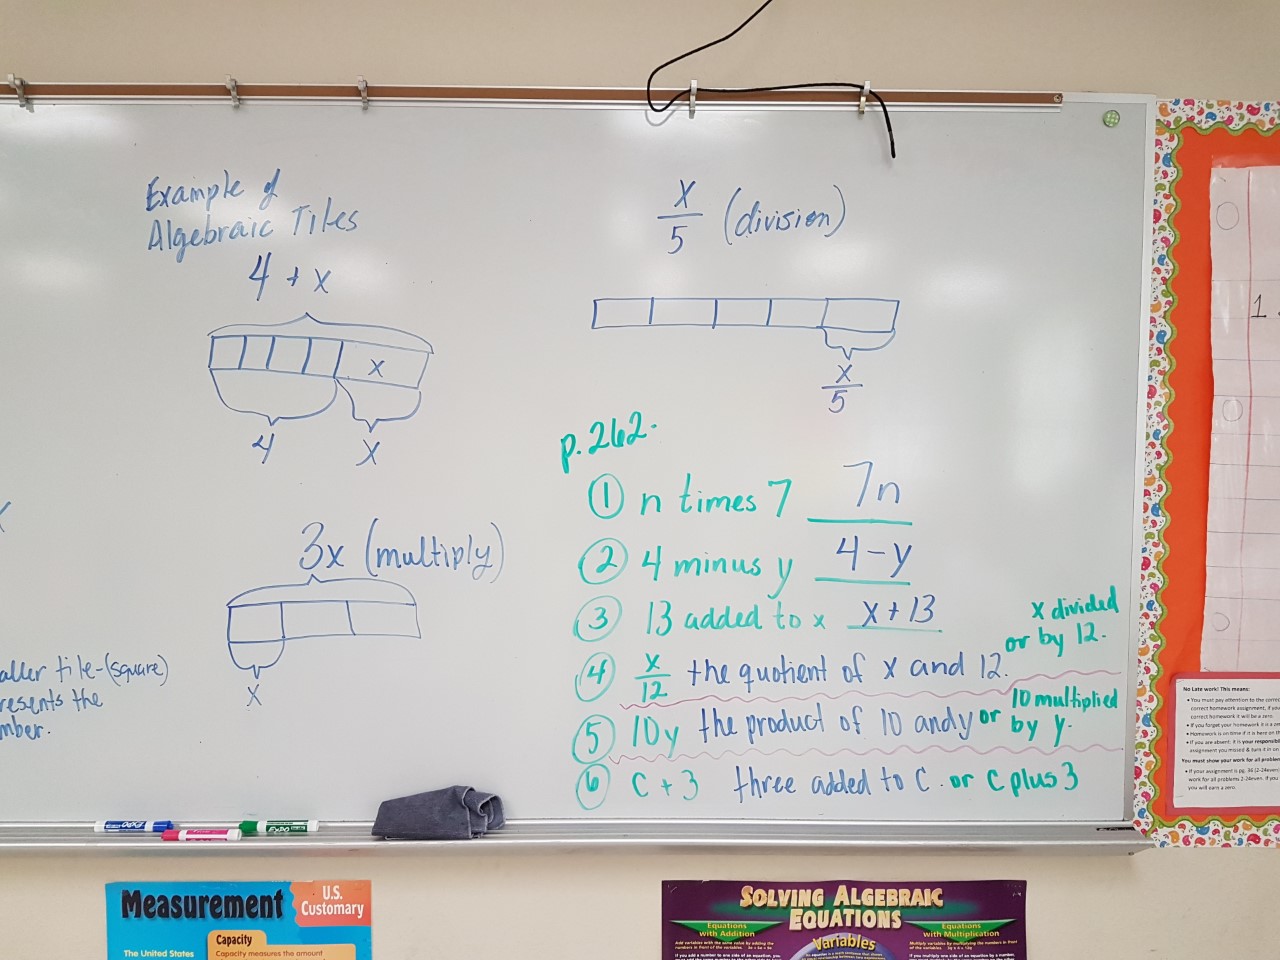 Example of
Algebraic Tiles
4 + x
x
4
x
3x (multiply)
x
aller tile-(square)
resents the
mber.
x
5 (division)
x
5
p.262.
① n times 7 7n
② 4 minus y 4-y
③ 13 added to x x+13
④ x/12 the quotient of x and 12. or x divided by 12.
⑤ 10y the product of 10 and y or 10 multiplied by y.
⑥ c + 3 three added to c. or c plus 3
1.
No Late work! This means:
EXPO
EXPO
Measurement
U.S.
Customary
The United States
Capacity
Capacity measures the amount
SOLVING ALGEBRAIC
EQUATIONS
Equations
with Addition
Variables
Equations
with Multiplication